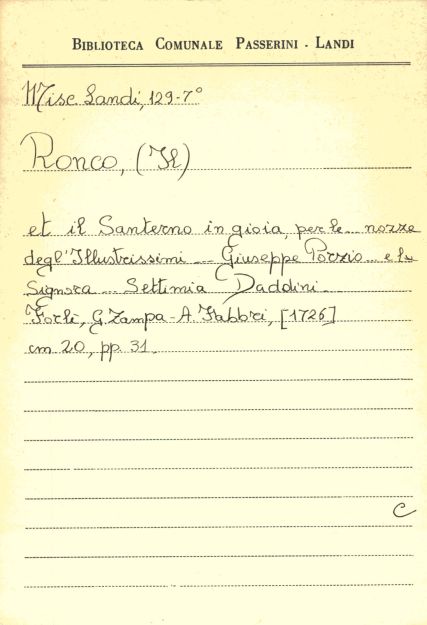 BIBLIOTECA COMUNALE PASSERINI - LANDI
Misc. Landi, 129-7°
Ronco, (Il)
et il Santerno in gioia, per le ... nozze
degl'Illustrissimi ... Giuseppe Porzio ... e la
Signora ... Settimia Daddini.
Forlì, G. Zampa - A. Fabbri, [1726]
cm 20, pp. 31.
C